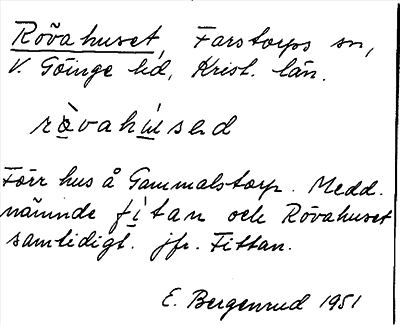 Rövahuset, Farstorps sn,
V. Göinge hd, Krist. län.
rò̱vahu̱sed
Förr hus å Gammalstorp. Medd.
nämnde fi̱tan och Rövahuset
samtidigt. jfr. Fittan.
E. Bergenrud 1951